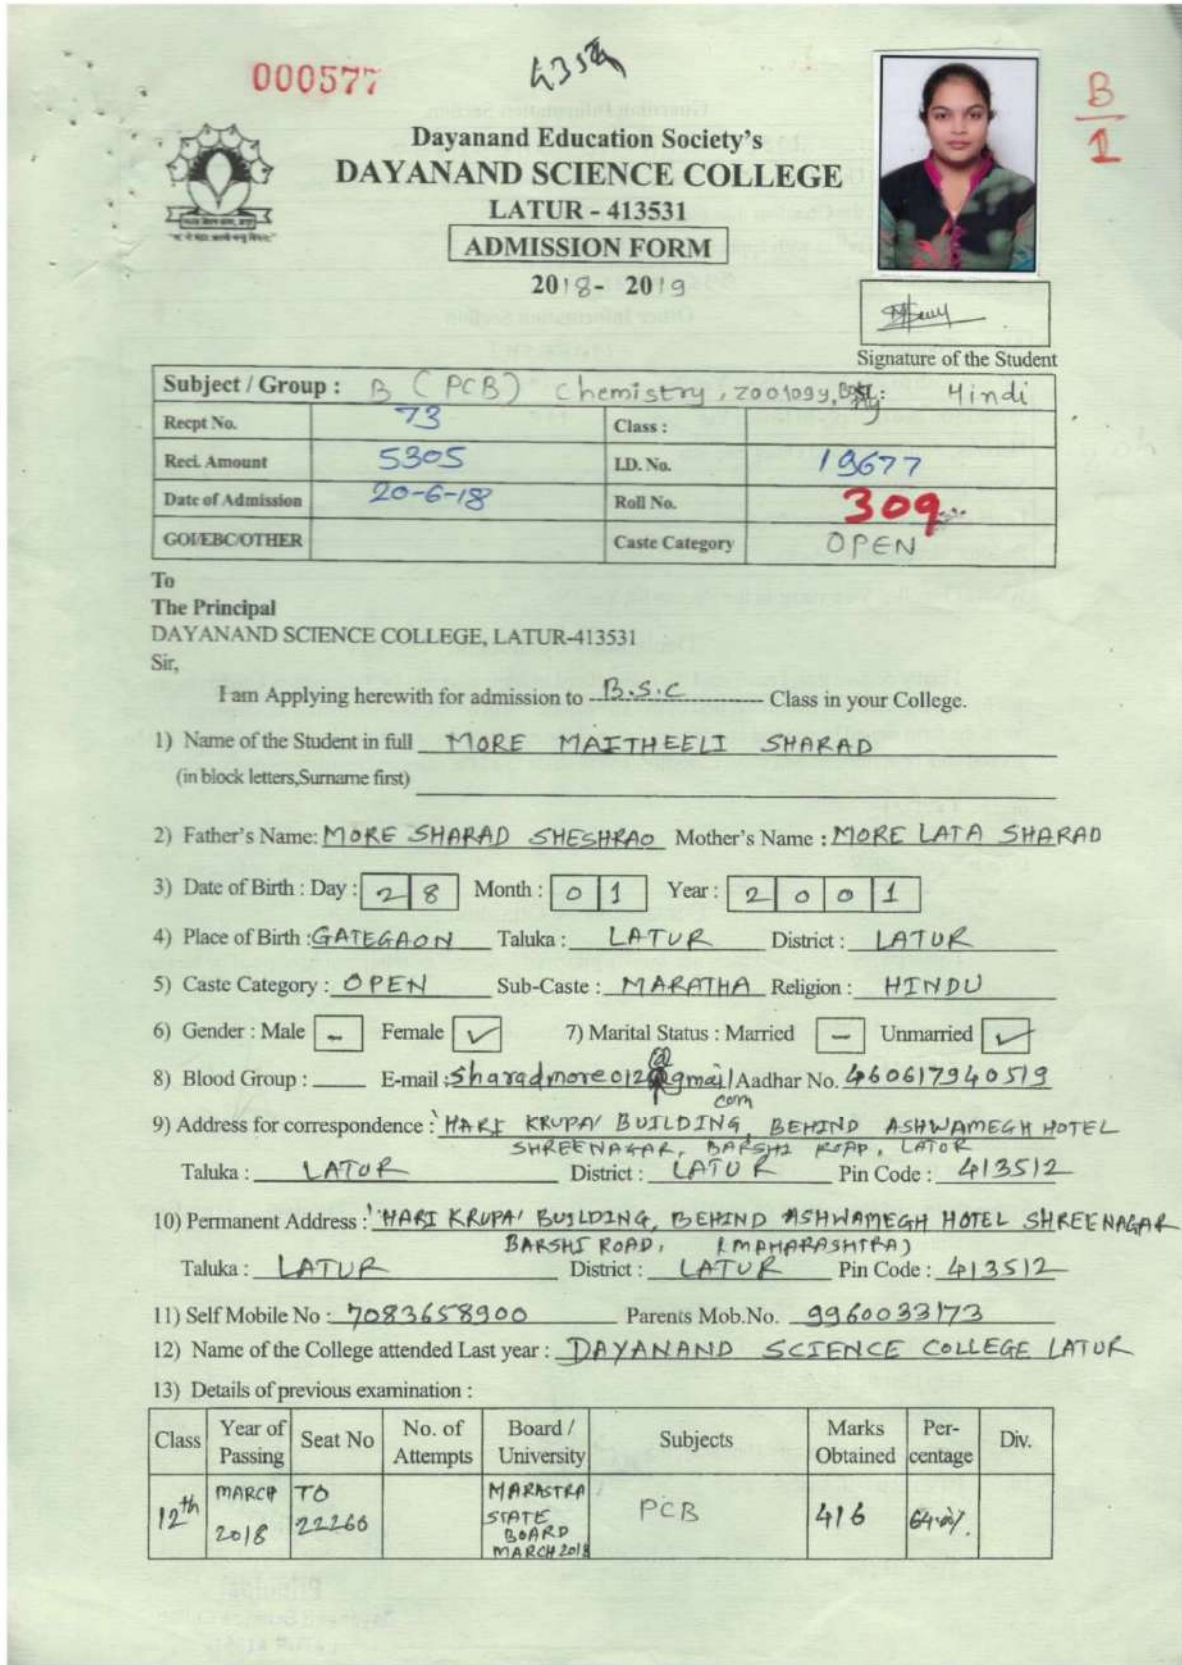 000577
B
1
Dayanand Education Society's
DAYANAND SCIENCE COLLEGE
LATUR - 413531
ADMISSION FORM
2018- 2019
Signature of the Student
Subject / Group : B (PCB) Chemistry, zoology, Hindi
Recpt No. 73 Class :
Reci. Amount 5305 I.D. No. 19677
Date of Admission 20-6-18 Roll No. 309
GOI/EBC/OTHER Caste Category OPEN
To
The Principal
DAYANAND SCIENCE COLLEGE, LATUR-413531
Sir,
I am Applying herewith for admission to B.S.C Class in your College.
1) Name of the Student in full MORE MAITHEELI SHARAD
(in block letters,Surname first)
2) Father's Name: MORE SHARAD SHESHRAO Mother's Name : MORE LATA SHARAD
3) Date of Birth : Day : 28 Month : 01 Year : 2001
4) Place of Birth : GATEGAON Taluka : LATUR District : LATUR
5) Caste Category : OPEN Sub-Caste : MARATHA Religion : HINDU
6) Gender : Male - Female ✓ 7) Marital Status : Married - Unmarried ✓
8) Blood Group : E-mail : sharadmore012@gmail Aadhar No. 460617940519
com
9) Address for correspondence : 'HARI KRUPA' BUILDING, BEHIND ASHWAMEGH HOTEL
SHREENAGAR, BARSHI ROAD, LATUR
Taluka : LATUR District : LATUR Pin Code : 413512
10) Permanent Address : 'HARI KRUPA' BUILDING, BEHIND ASHWAMEGH HOTEL SHREENAGAR
BARSHI ROAD, (MAHARASHTRA)
Taluka : LATUR District : LATUR Pin Code : 413512
11) Self Mobile No : 7083658900 Parents Mob.No. 9960033173
12) Name of the College attended Last year : DAYANAND SCIENCE COLLEGE LATUR
13) Details of previous examination :
Class Year of Passing Seat No No. of Attempts Board / University Subjects Marks Obtained Per-centage Div.
12th MARCH 2018 TO 22260 MARASTRA STATE BOARD MARCH 2018 PCB 416